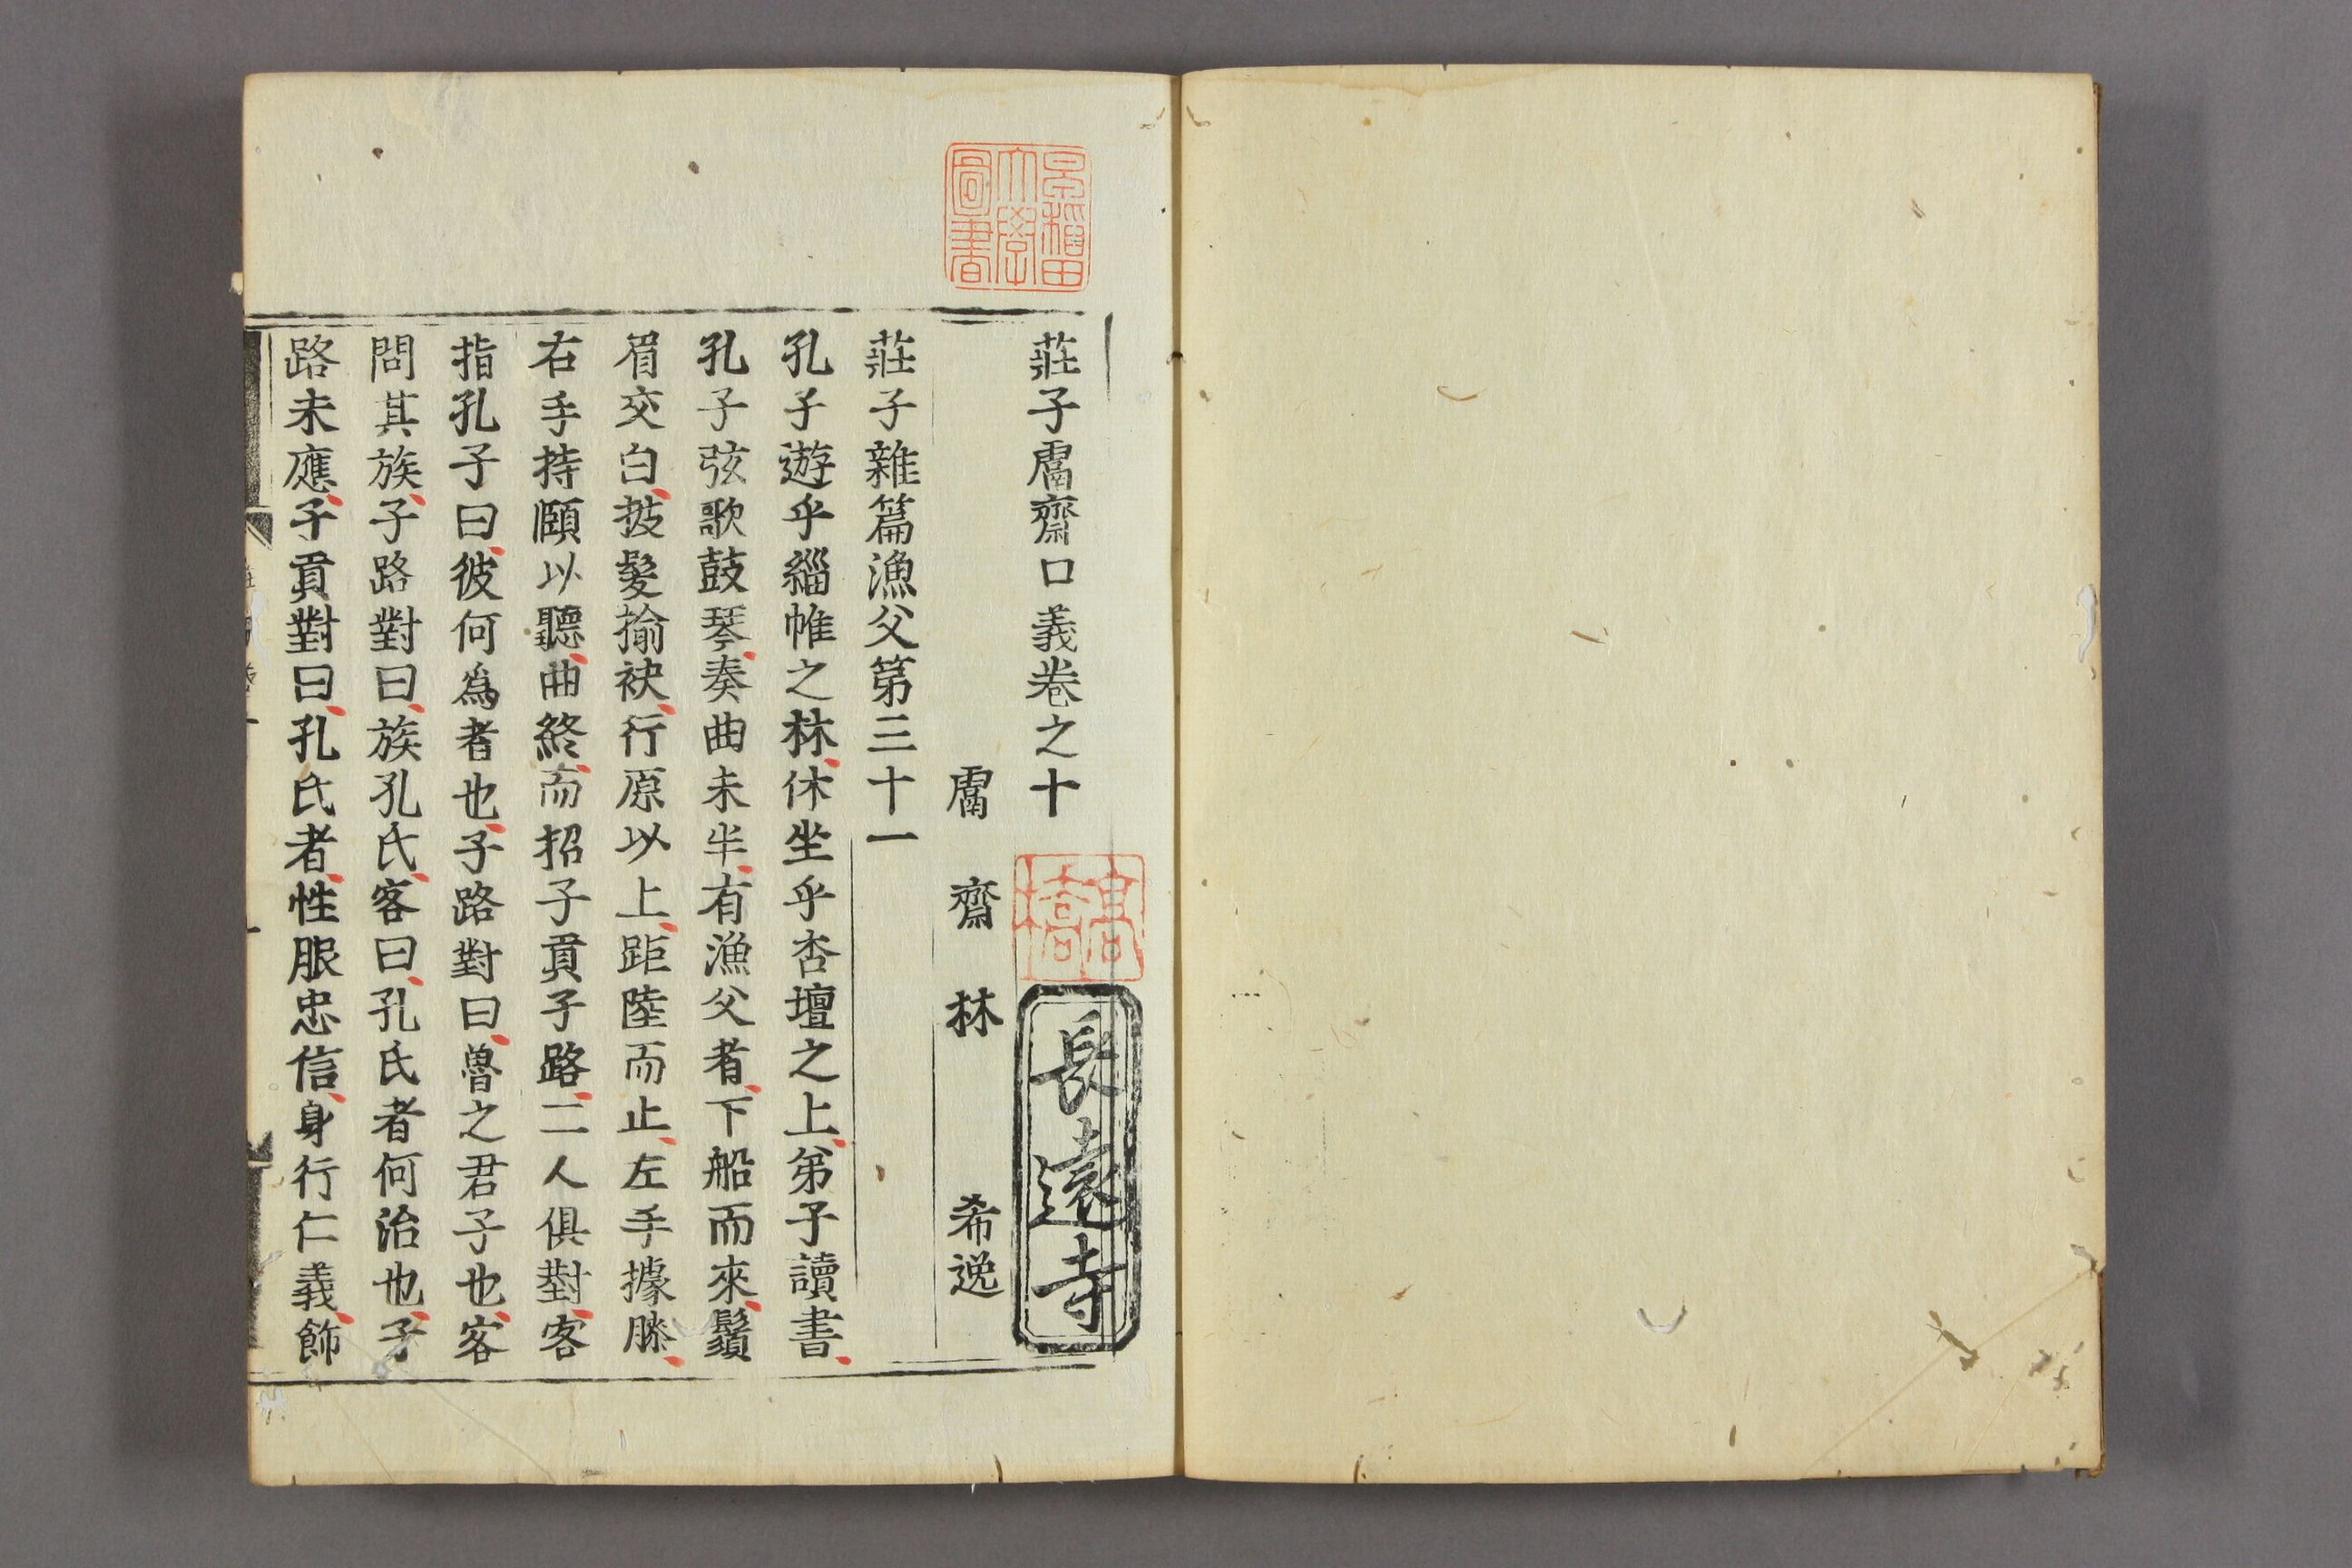 莊子鬳齋口義卷之十
鬳齋林希逸
莊子雜篇漁父第三十一
孔子遊乎緇帷之林休坐乎杏壇之上弟子讀書
孔子弦歌鼓琴奏曲未半有漁父者下船而來鬚
眉交白披髮揄袂行原以上距陸而止左手據膝
右手持頤以聽曲終而招子貢子路二人俱對客
指孔子曰彼何爲者也子路對曰魯之君子也客
問其族子路對曰族孔氏客曰孔氏者何治也子
路未應子貢對曰孔氏者性服忠信身行仁義飾
早稲田大學圖書
高橋
長遠寺